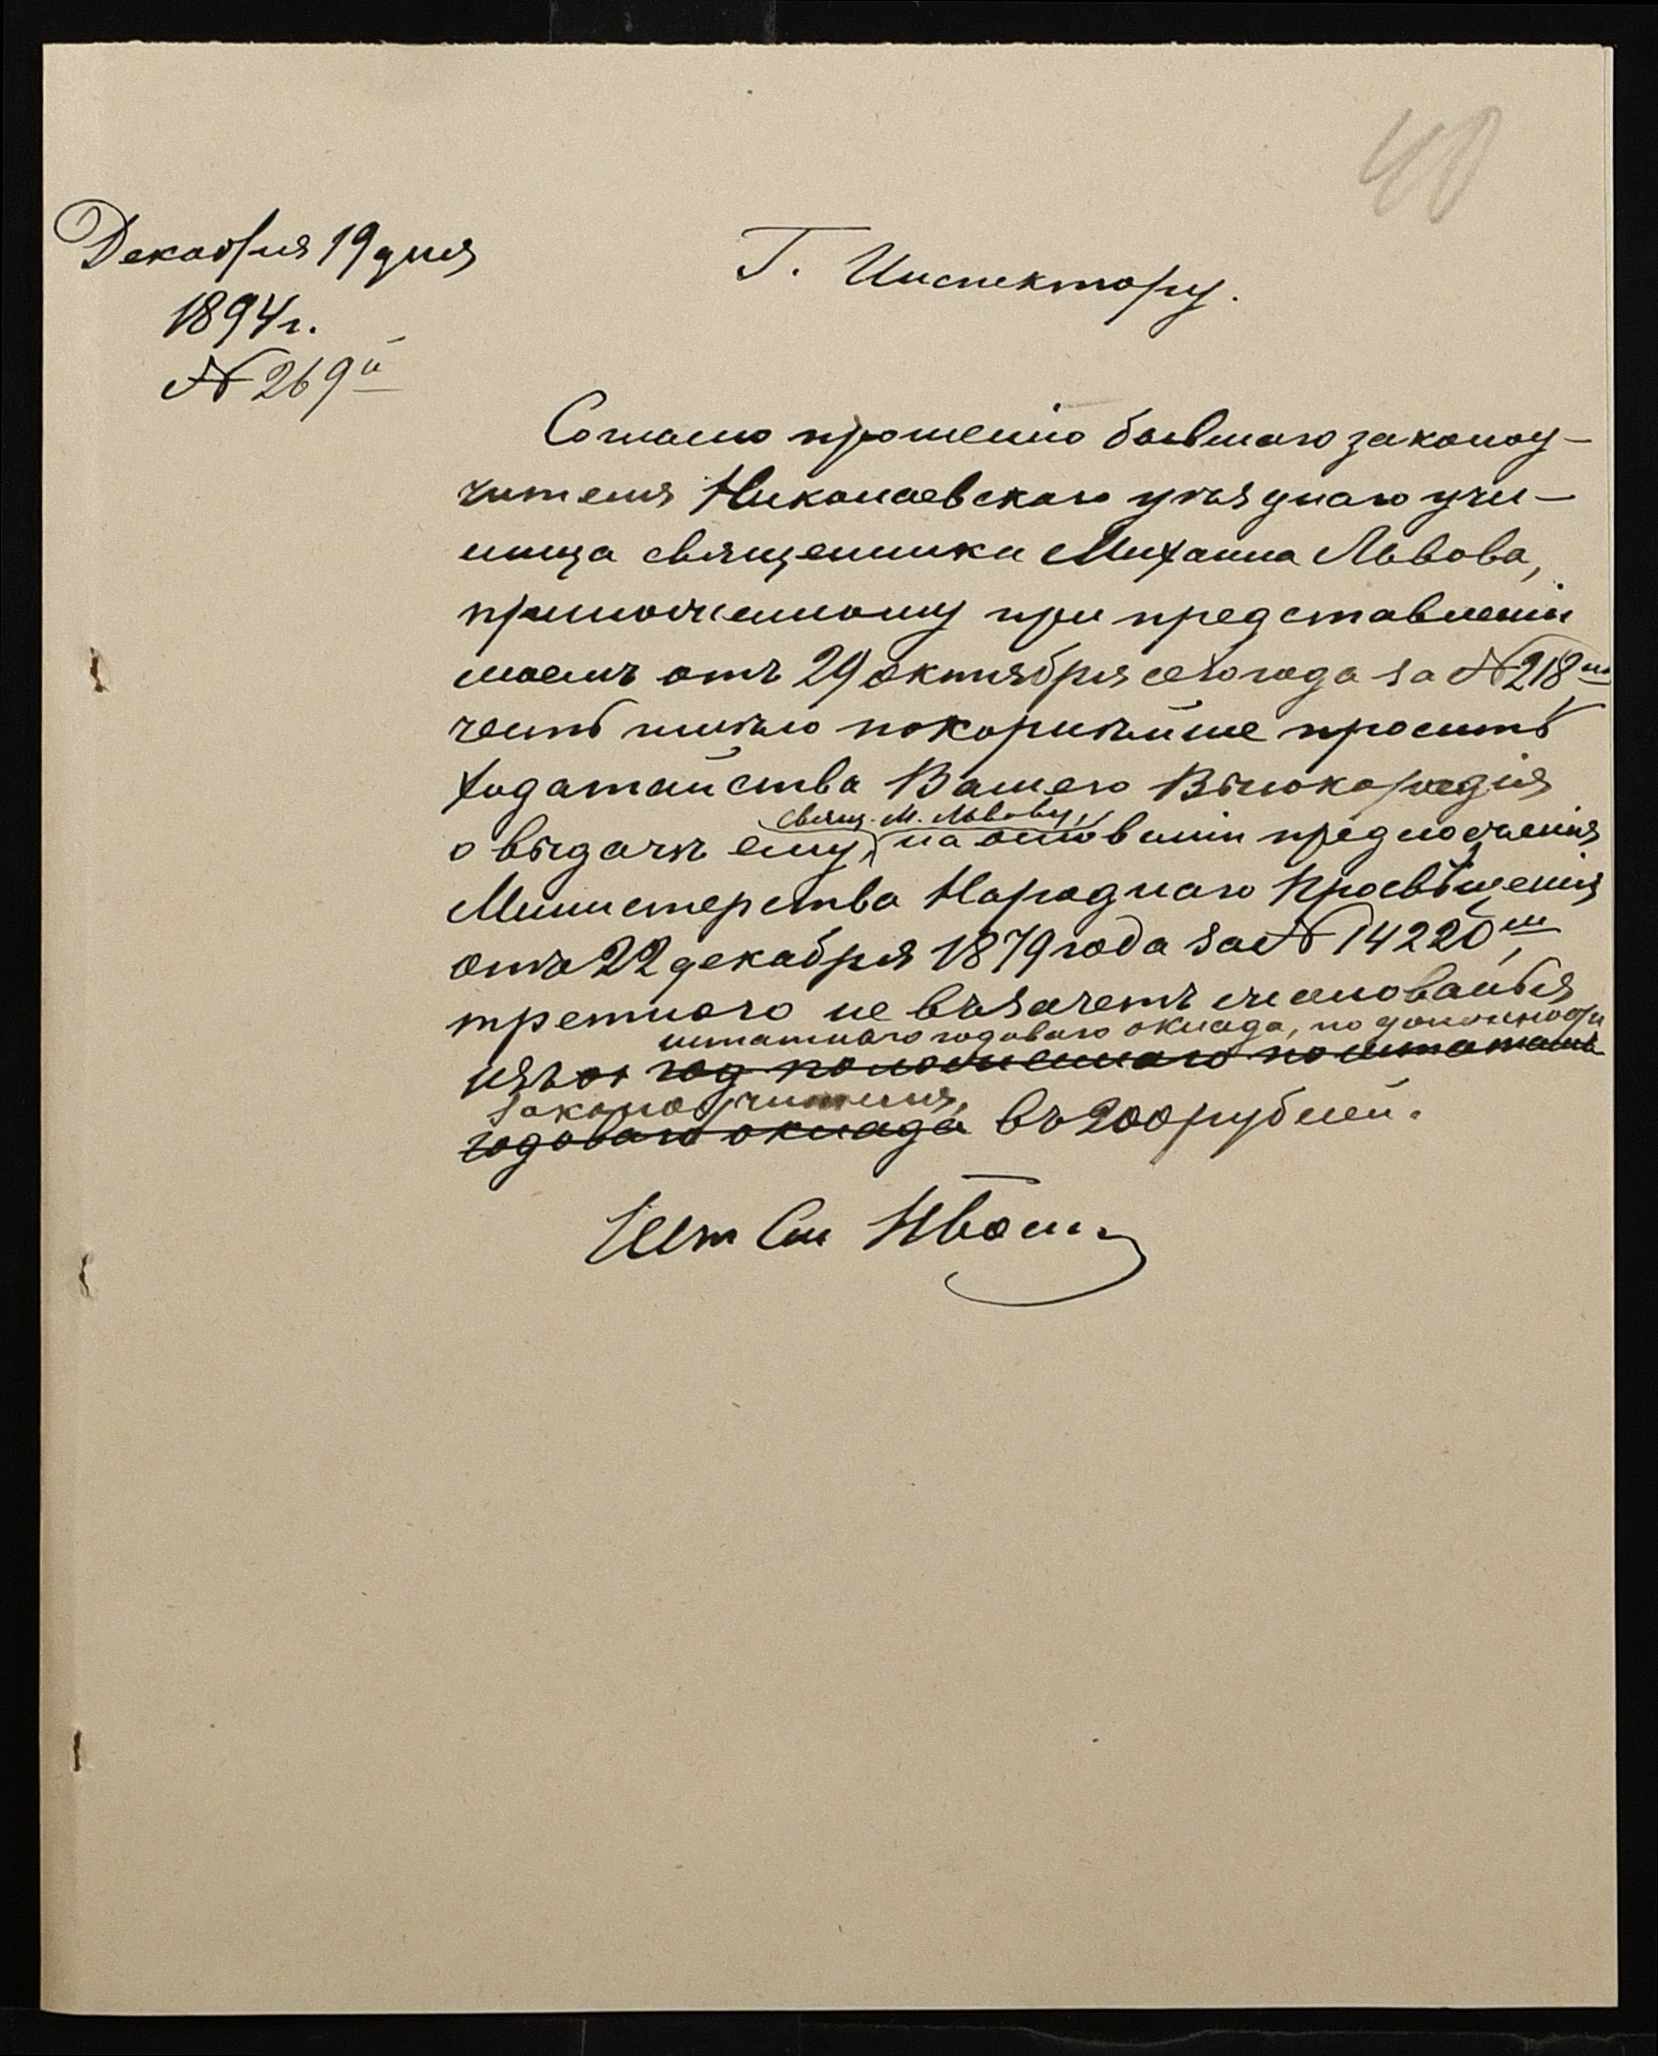 40
Декабря 19 дня
1894 г.
№ 269й
Г. Инспектору.
Согласно прошенію бывшаго законоу-
чителя Николаевскаго уѣзднаго учи-
лища священника Михаила Львова,
приложенному при представленіи
моемъ отъ 29 октября сего года за № 218мъ
честь имѣю покорнѣйше просить
ходатайства Вашего Высокородія
свящ. М. Львову,
о выдачѣ ему, на основаніи предложенія
Министерства Народнаго Просвѣщенія
отъ 22 декабря 1879 года за № 14220мъ,
третнаго не въ зачетъ жалованья
штатнаго годоваго оклада, по должности
изъ положеннаго по штатамъ
законоучителя,
годоваго оклада въ 200 рублей.
Шт См